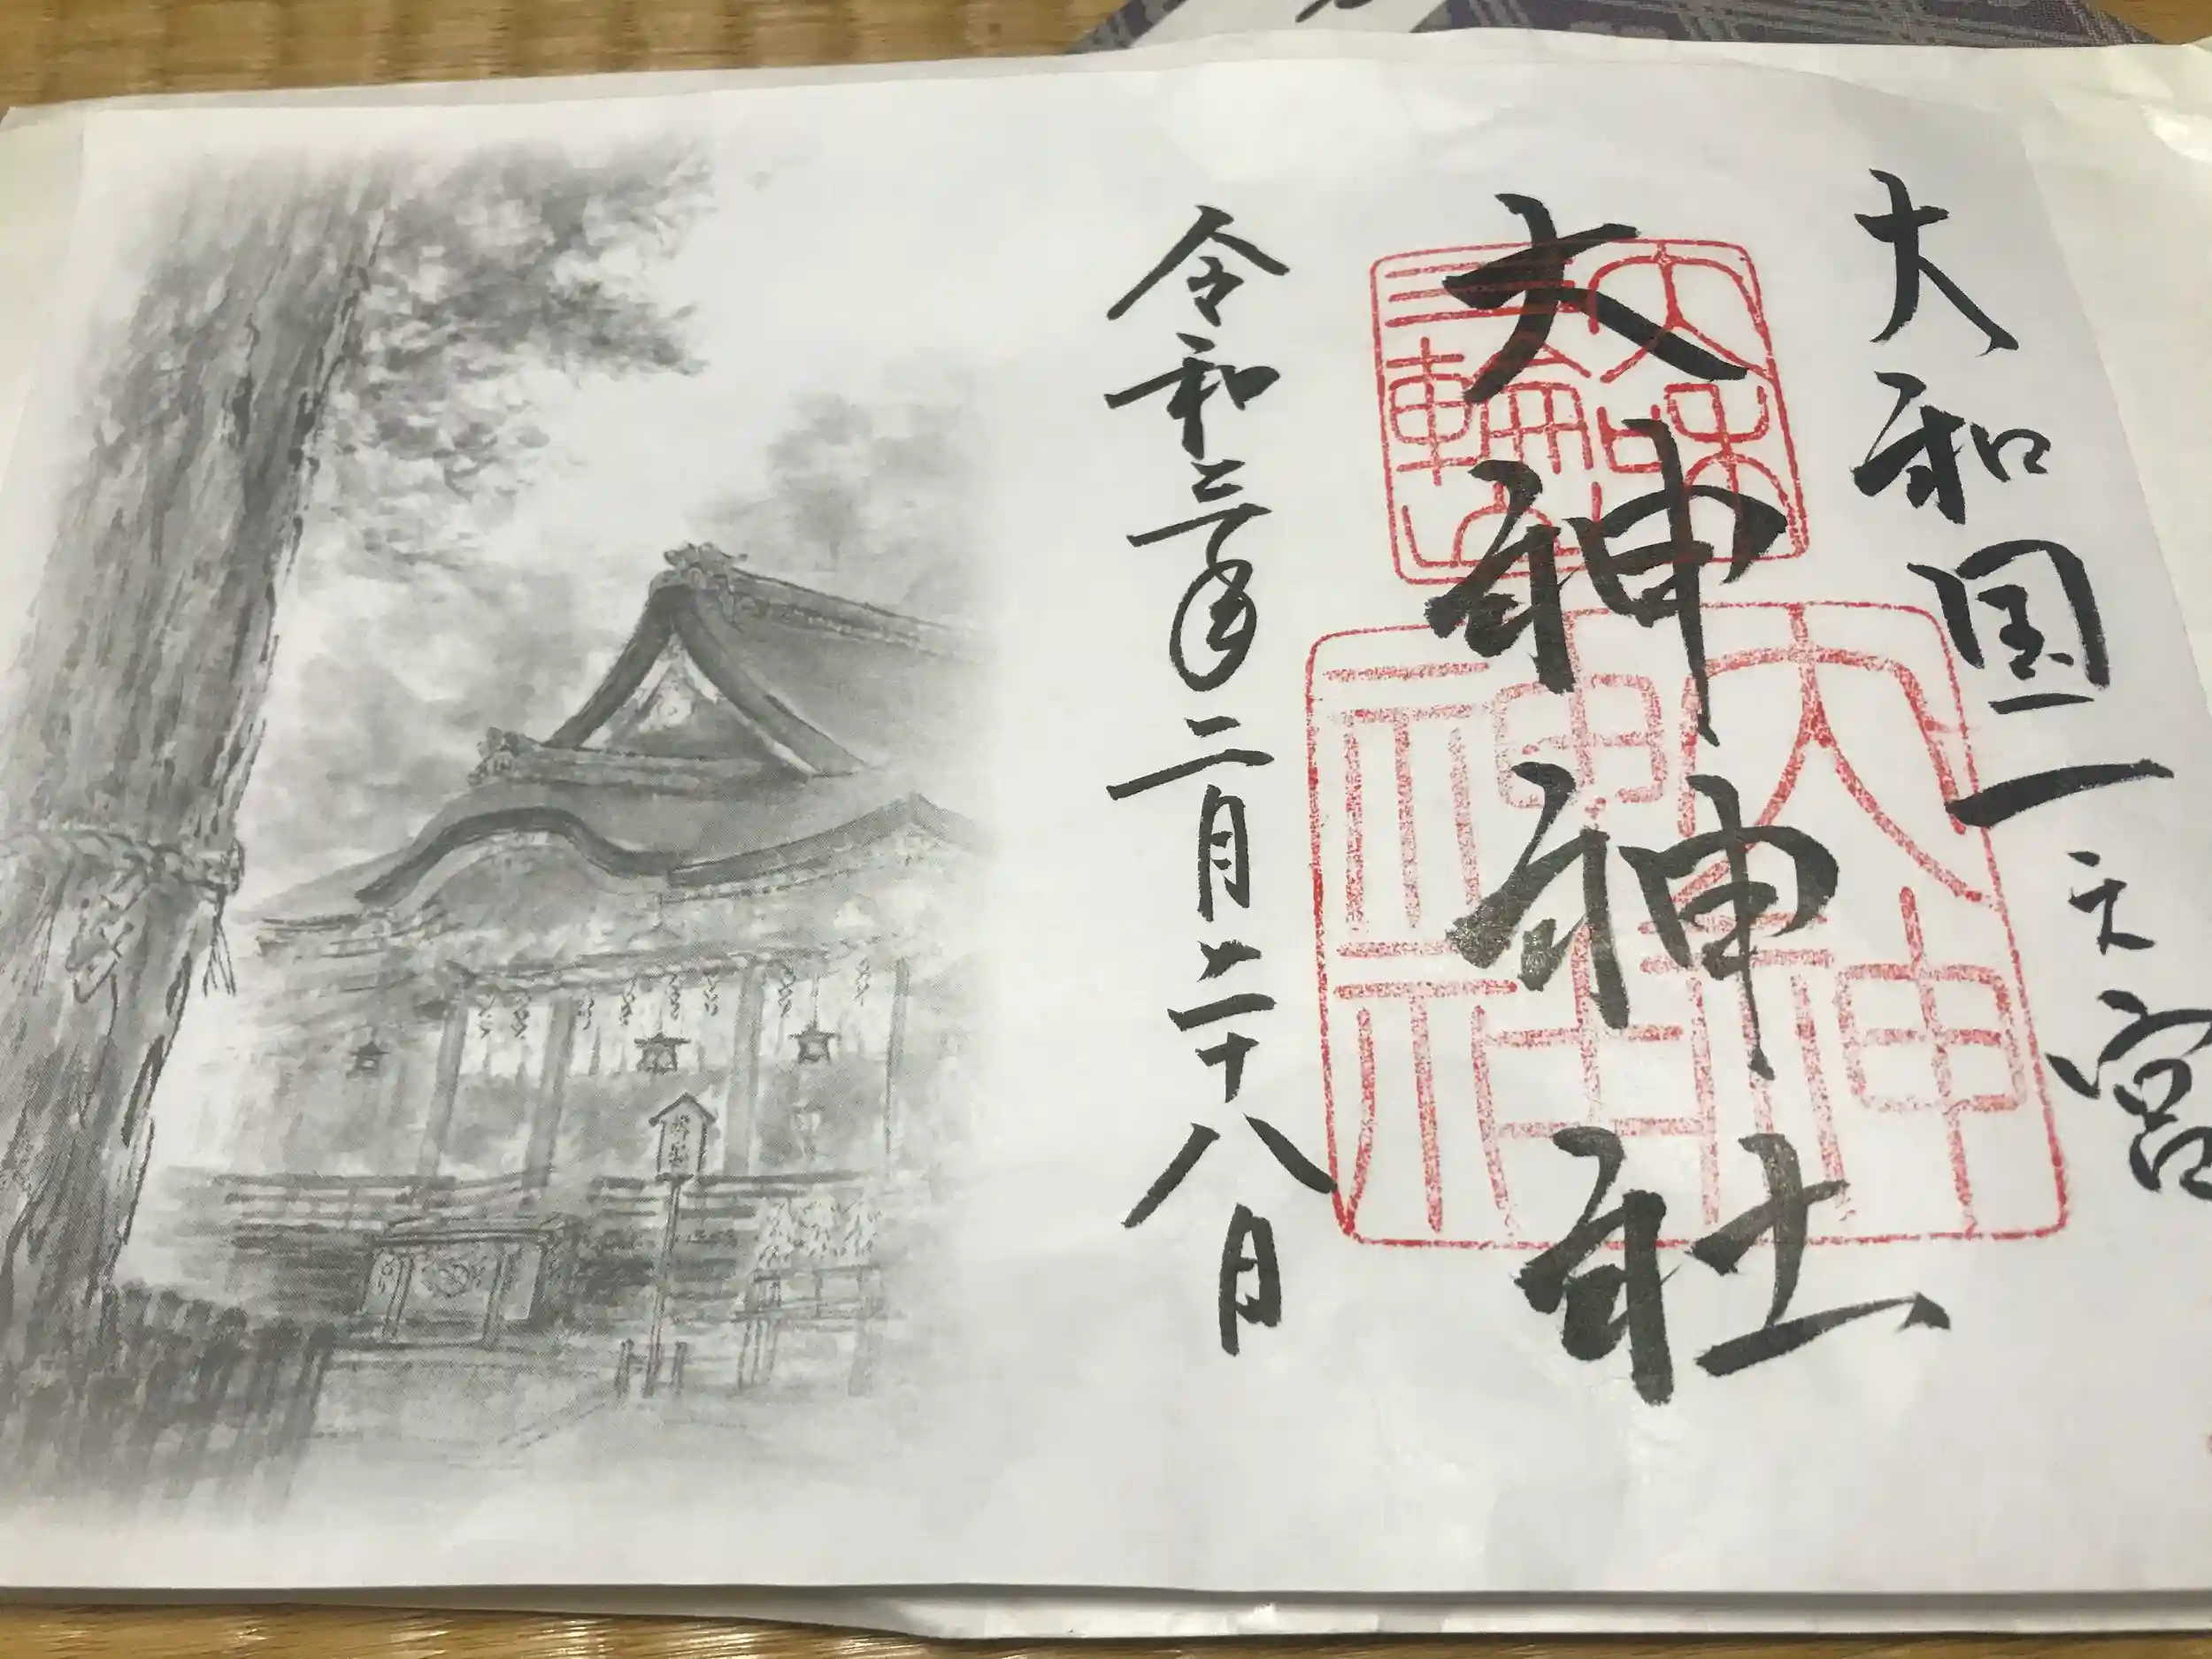 大和国一之宮
大神神社
大和
三輪山
大神
神社
令和三年二月二十八日